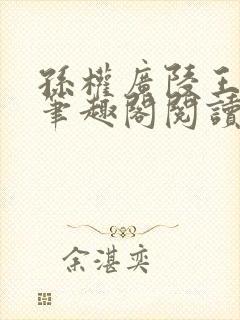 孫權廣陵王
筆趣閣閱讀
余湛奕